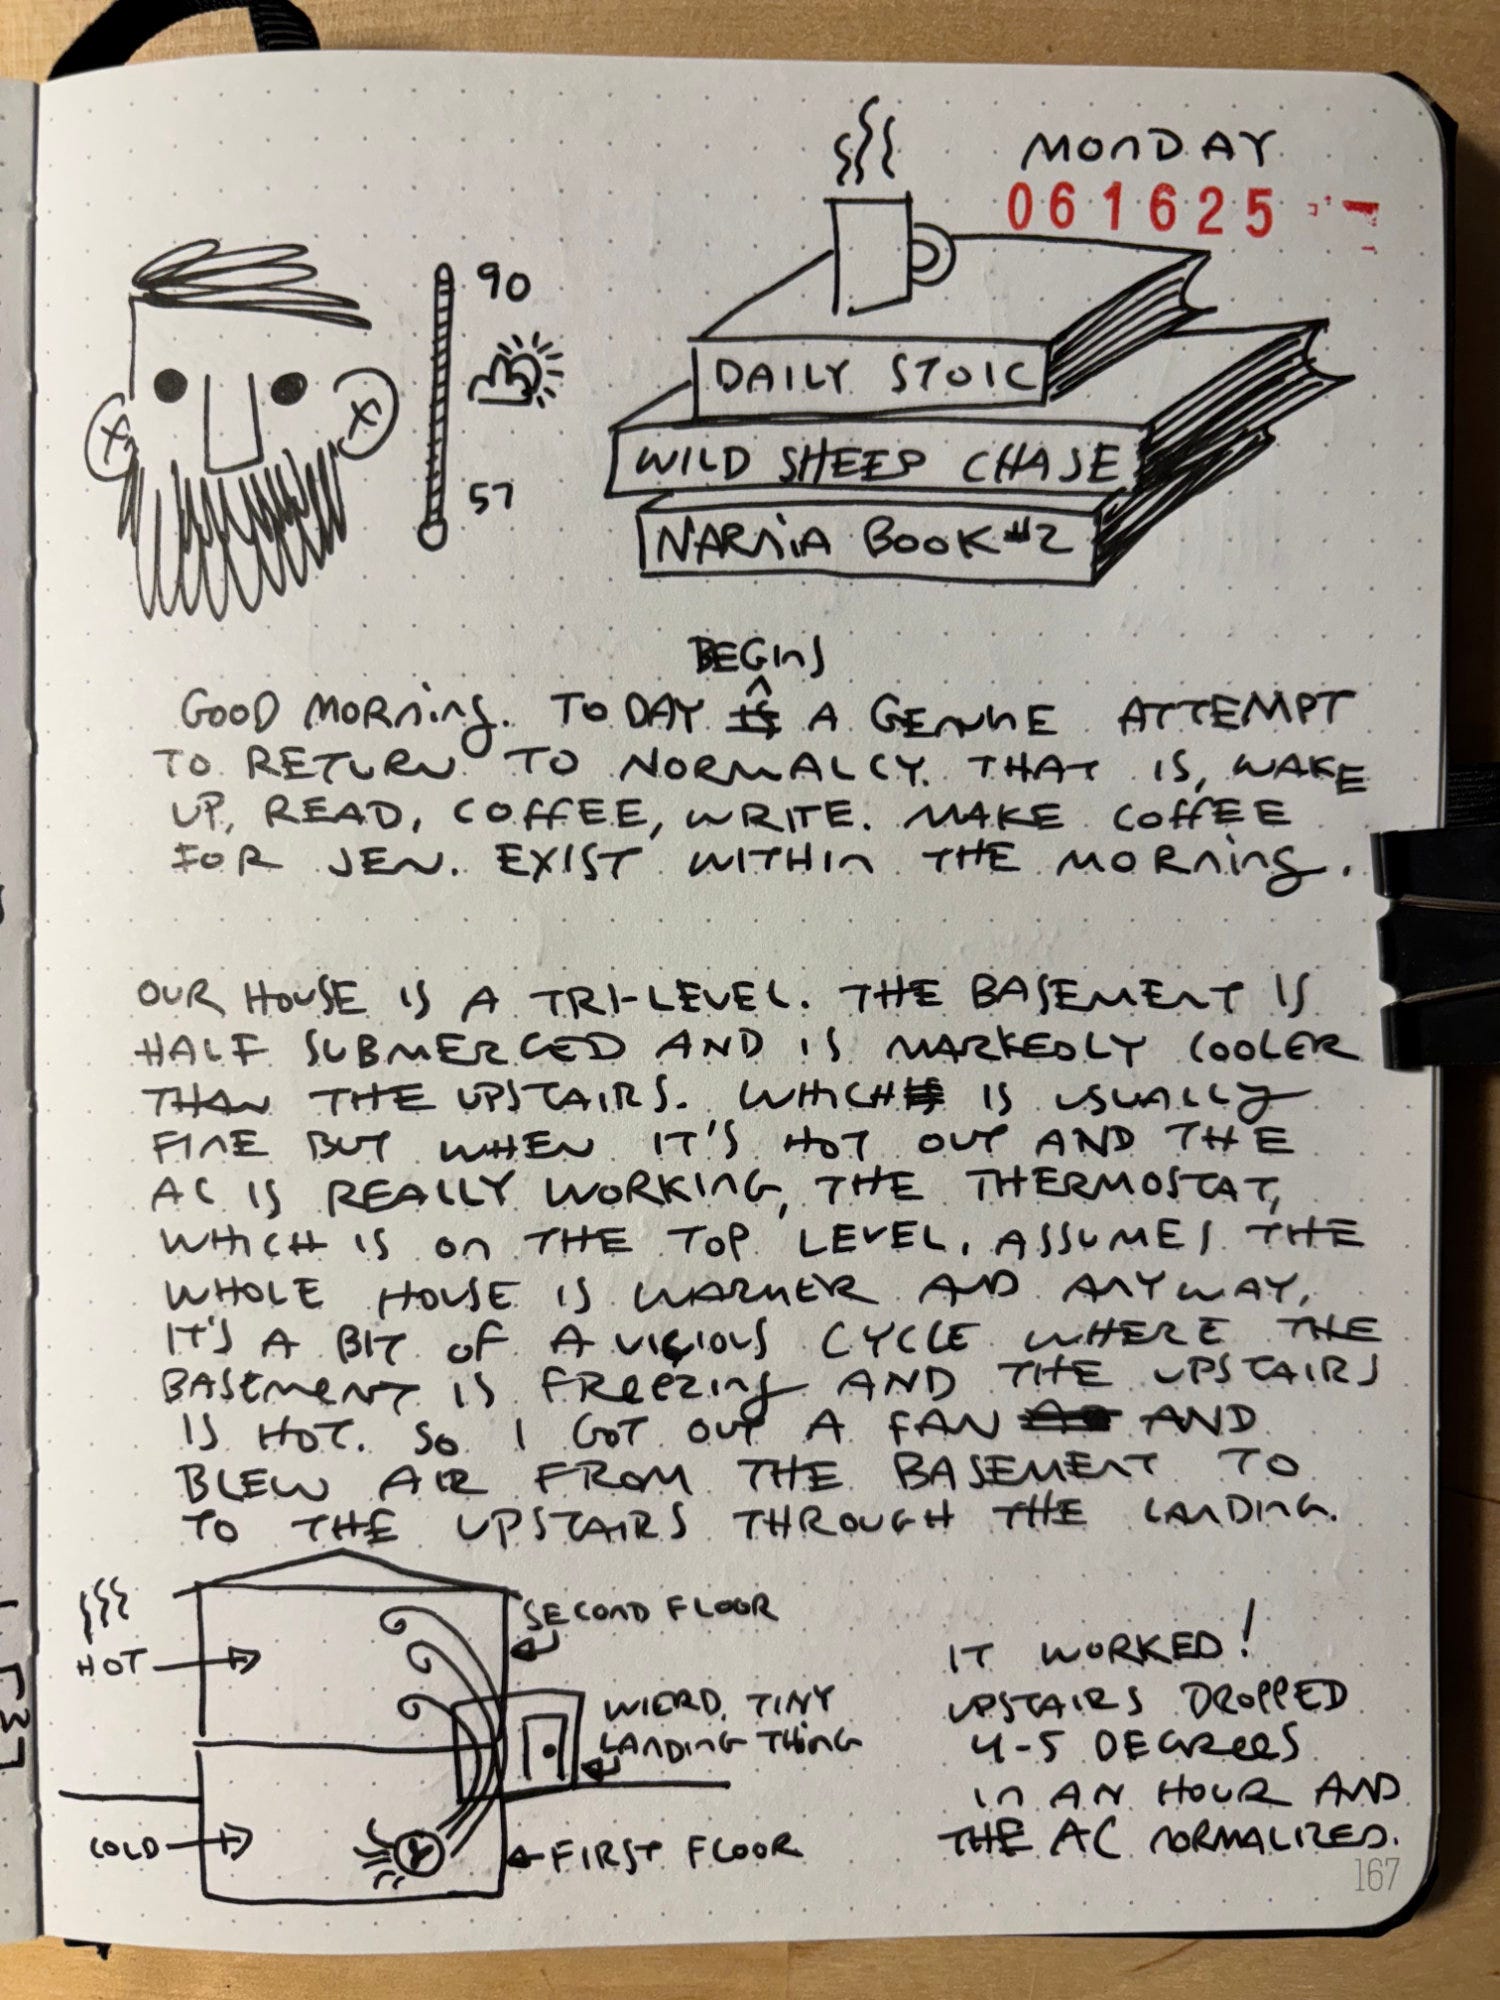 MONDAY
061625
90
57
DAILY STOIC
WILD SHEEP CHASE
NARNIA BOOK #2
BEGINS
GOOD MORNING. TODAY IS A GENUINE ATTEMPT
TO RETURN TO NORMALCY. THAT IS, WAKE
UP, READ, COFFEE, WRITE. MAKE COFFEE
FOR JEN. EXIST WITHIN THE MORNING.
OUR HOUSE IS A TRI-LEVEL. THE BASEMENT IS
HALF SUBMERGED AND IS MARKEDLY COOLER
THAN THE UPSTAIRS. WHICH IS USUALLY
FINE BUT WHEN IT'S HOT OUT AND THE
AC IS REALLY WORKING, THE THERMOSTAT,
WHICH IS ON THE TOP LEVEL, ASSUMES THE
WHOLE HOUSE IS WARMER AND ANYWAY,
IT'S A BIT OF A VICIOUS CYCLE WHERE THE
BASEMENT IS FREEZING AND THE UPSTAIRS
IS HOT. SO I GOT OUT A FAN AND
BLEW AIR FROM THE BASEMENT TO
TO THE UPSTAIRS THROUGH THE LANDING.
HOT
COLD
SECOND FLOOR
WIERD, TINY
LANDING THING
FIRST FLOOR
IT WORKED!
UPSTAIRS DROPPED
4-5 DEGREES
IN AN HOUR AND
THE AC NORMALIZED.
167